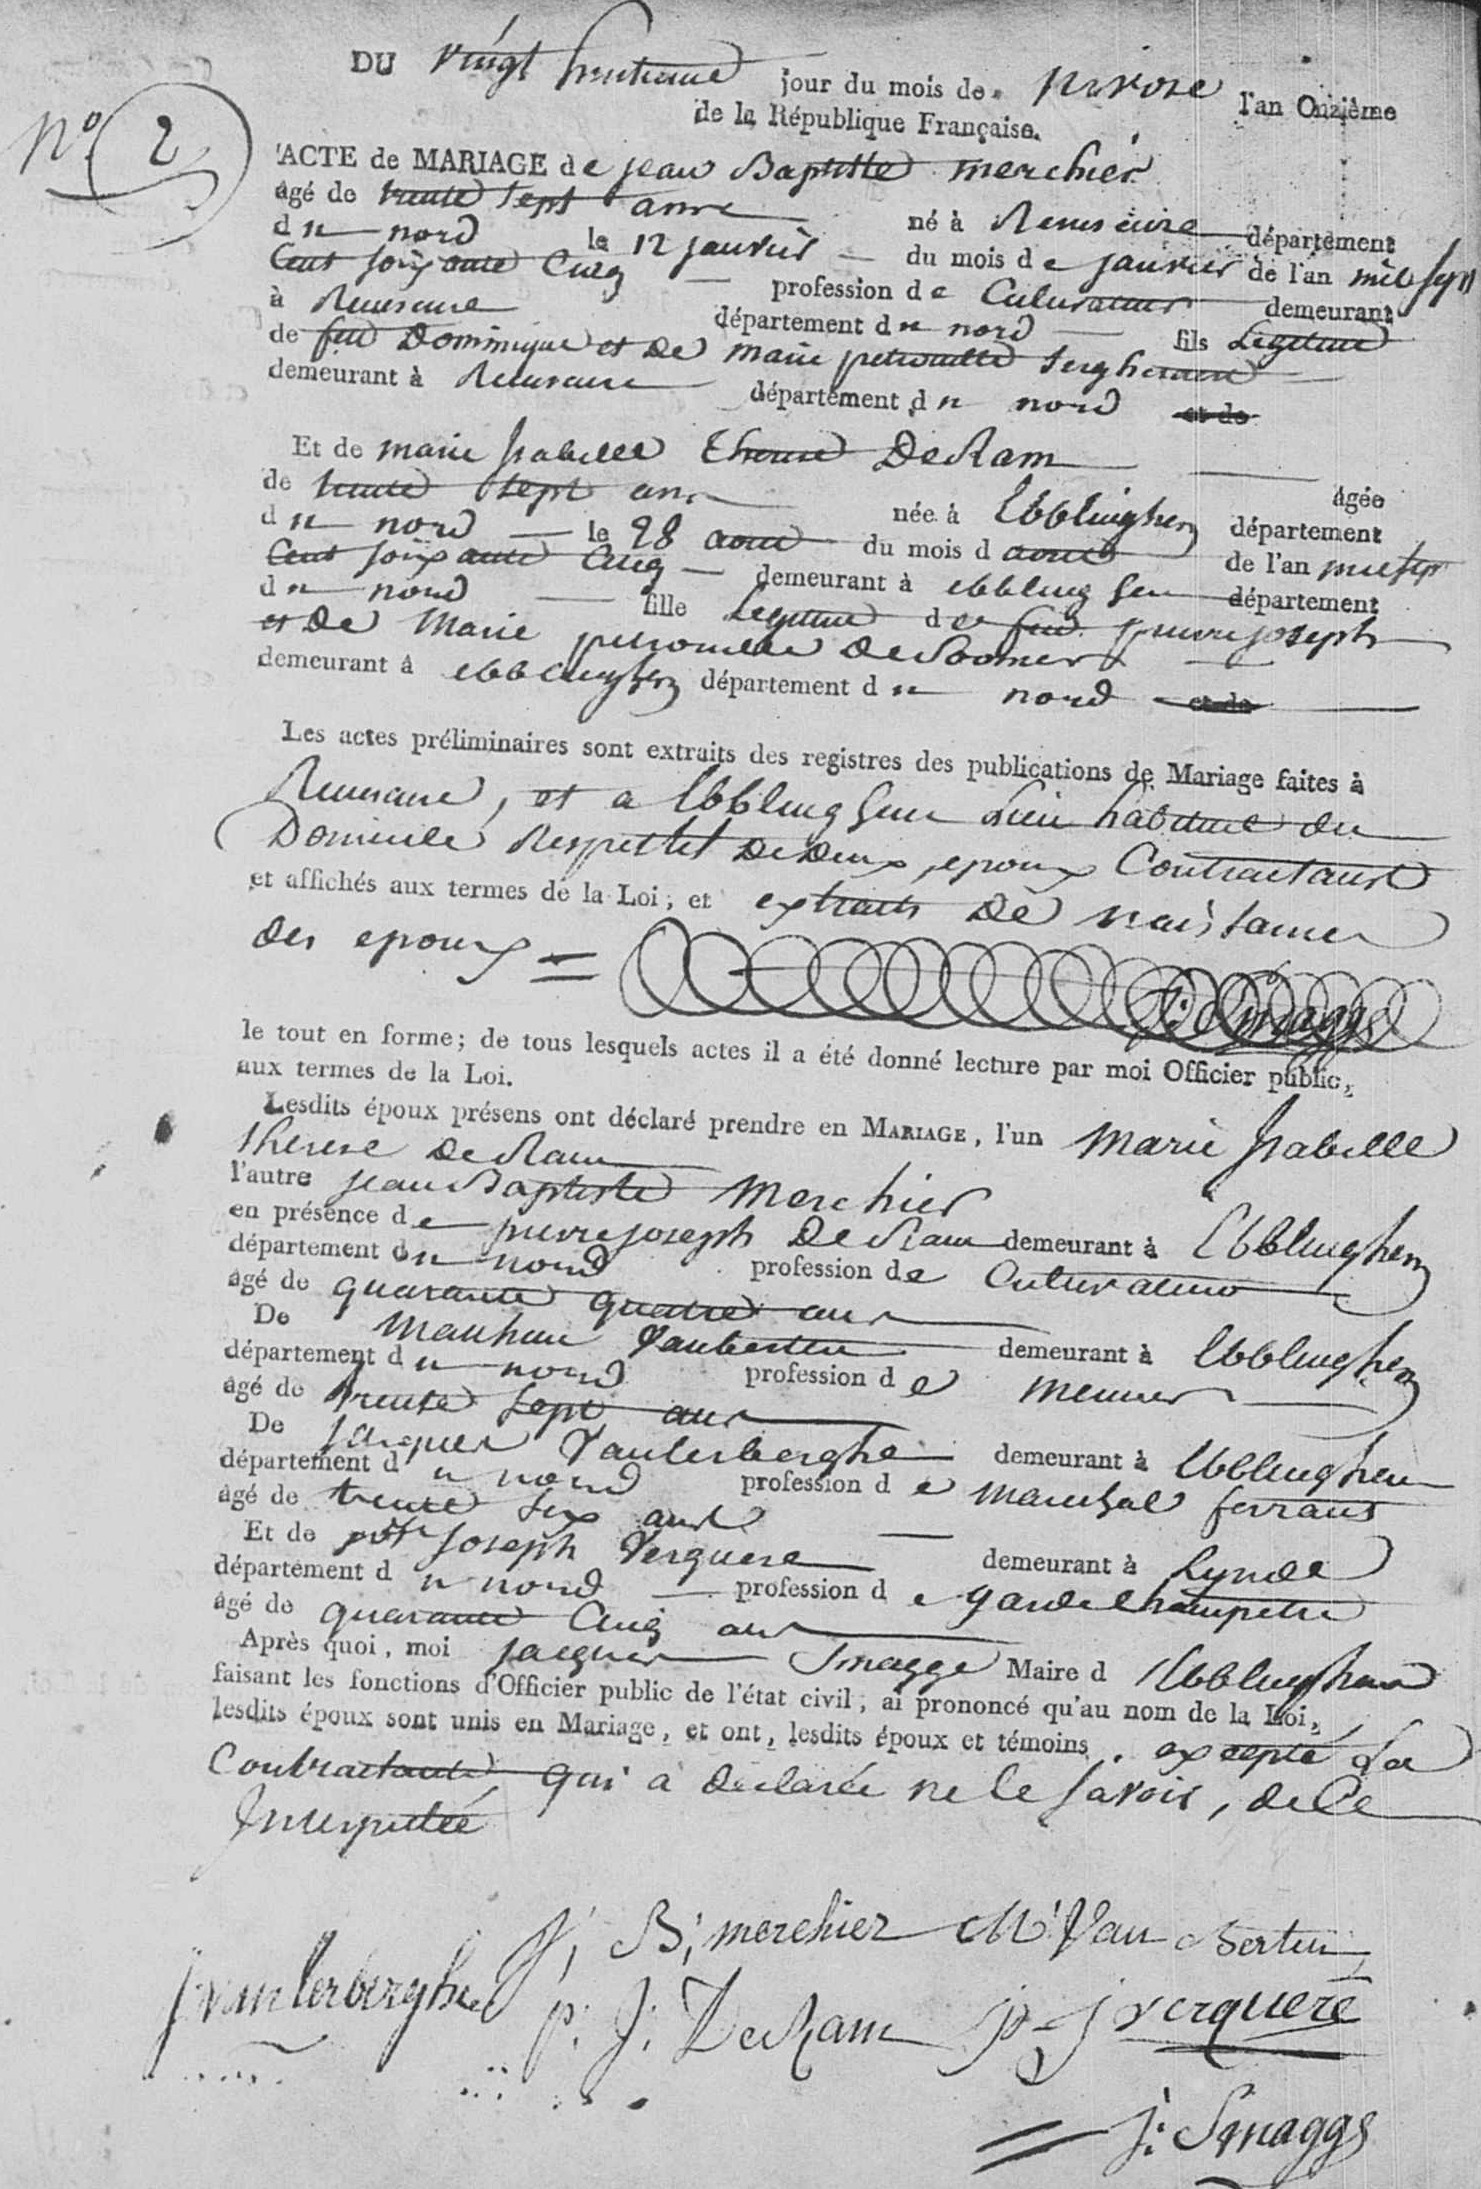 DU vingt huitieme jour du mois de nivose l'an Onzième
de la République Française.
N.º 2
ACTE de MARIAGE de jean Baptiste merchier
âgé de trente sept ans né à Renescure département
du nord le 12 janvier du mois de janvier de l'an mil sept
Cent soixante Cinq profession de Culivateur demeurant
à Renescure département du nord fils Legitime
de feu Dominique et De marie petronille
demeurant à Renescure département du nord et de
Et de marie Isabelle Therese DeRam âgée
de trente sept ans née à Ebblinghem département
du nord le 28 aout du mois d aout de l'an mil sept
Cent soixante Cinq demeurant à ebblinghem département
du nord fille Legitime de feu pierre joseph
et De Marie petronille
demeurant à ebblinghem département du nord et de
Les actes préliminaires sont extraits des registres des publications de Mariage faites à
Renescure, et a Ebblinghem Lieu habituel du
Domicile Respectif De Deux epoux Contractants
et affichés aux termes de la Loi; et extraits De naissance
des epoux =
J: Smagge
le tout en forme; de tous lesquels actes il a été donné lecture par moi Officier public,
aux termes de la Loi.
Lesdits époux présens ont déclaré prendre en MARIAGE, l'un Marie Isabelle
therese DeRam
l'autre jean Baptiste Merchier
en présence de pierre joseph DeRam demeurant à Ebblinghem
département du nord profession de Culivateur
âgé de quarante quatre ans
De Mathieu Vanbertin demeurant à Ebblinghem
département du nord profession de meunier
âgé de trente sept ans
De jacques Vanlerberghe demeurant à Ebblinghem
département du nord profession de marechal ferrant
âgé de trente six ans
Et de joseph Verquere demeurant à Lynde
département du nord profession de garde Champetre
âgé de quarante Cinq ans
Après quoi, moi jacques Smagge Maire d Ebblinghem
faisant les fonctions d'Officier public de l'état civil, ai prononcé qu'au nom de la Loi,
lesdits époux sont unis en Mariage, et ont, lesdits époux et témoins, excepté La
Contractante qui a declarée ne le savoir, de Ce
Interpellée
J: B: merchier M: Van Bertin
j vanlerberghe P: J: DeRam p j verquere
= J: Smagge